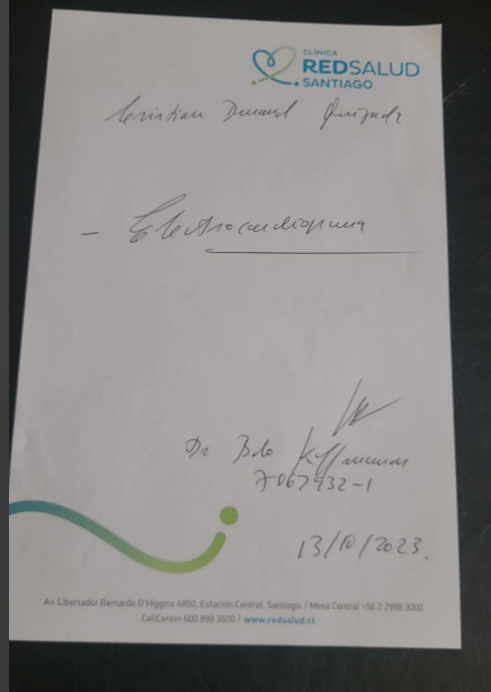 CLÍNICA
REDSALUD
SANTIAGO
Cristian
- Electrocardiograma
Dr
7067932-1
13/10/2023.
Av. Libertador Bernardo O'Higgins 4850, Estación Central. Santiago. / Mesa Central +56 2 2998 3000
CallCenter 600 898 3600 / www.redsalud.cl